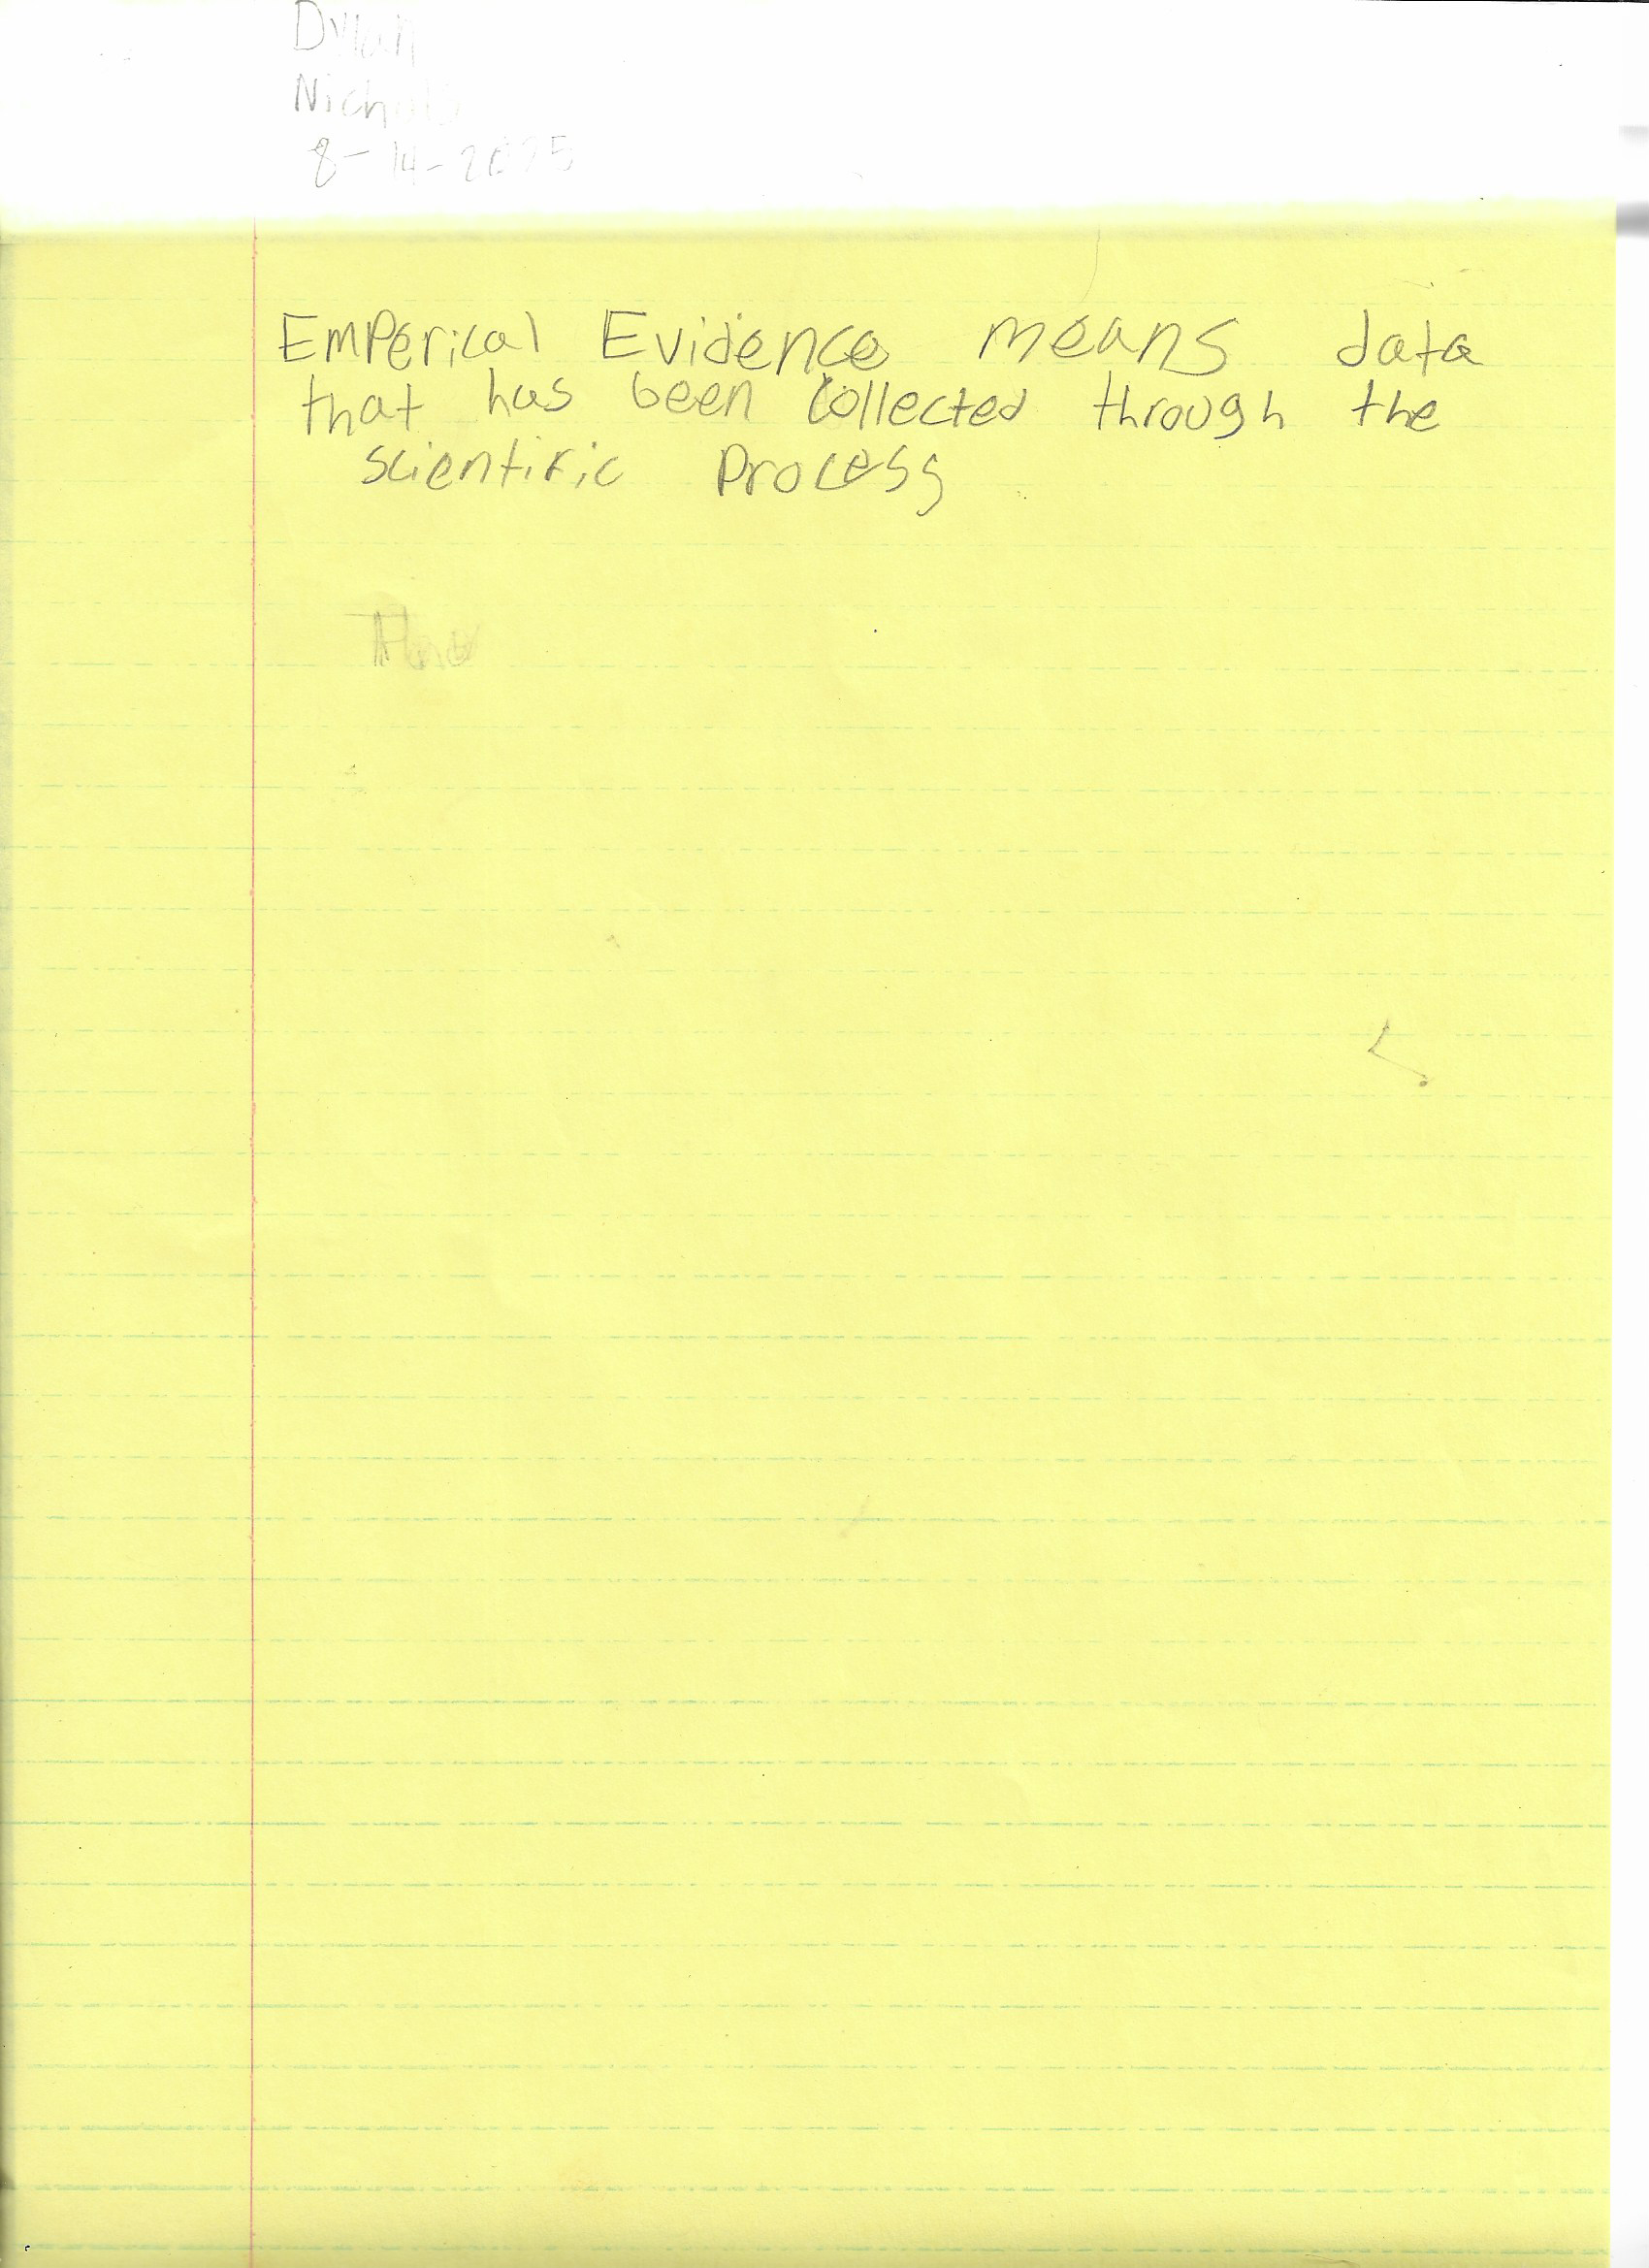 Dylan
Nichols
8-14-2025
Emperical Evidence means data
that has been collected through the
scientific process